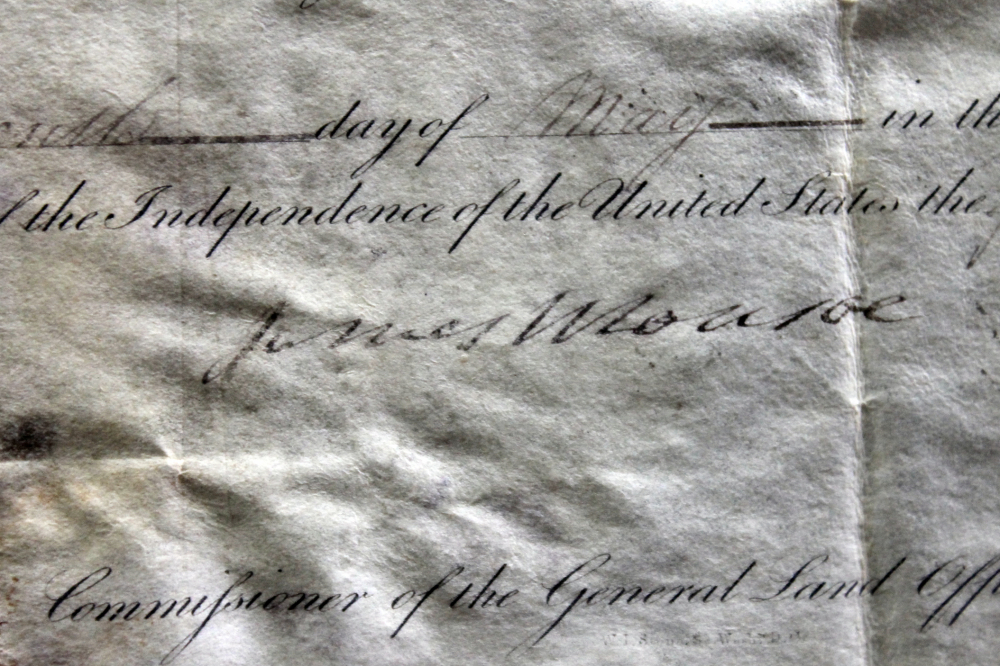 day of May in th
the Independence of the United States the
James Monroe
Commissioner of the General Land Off